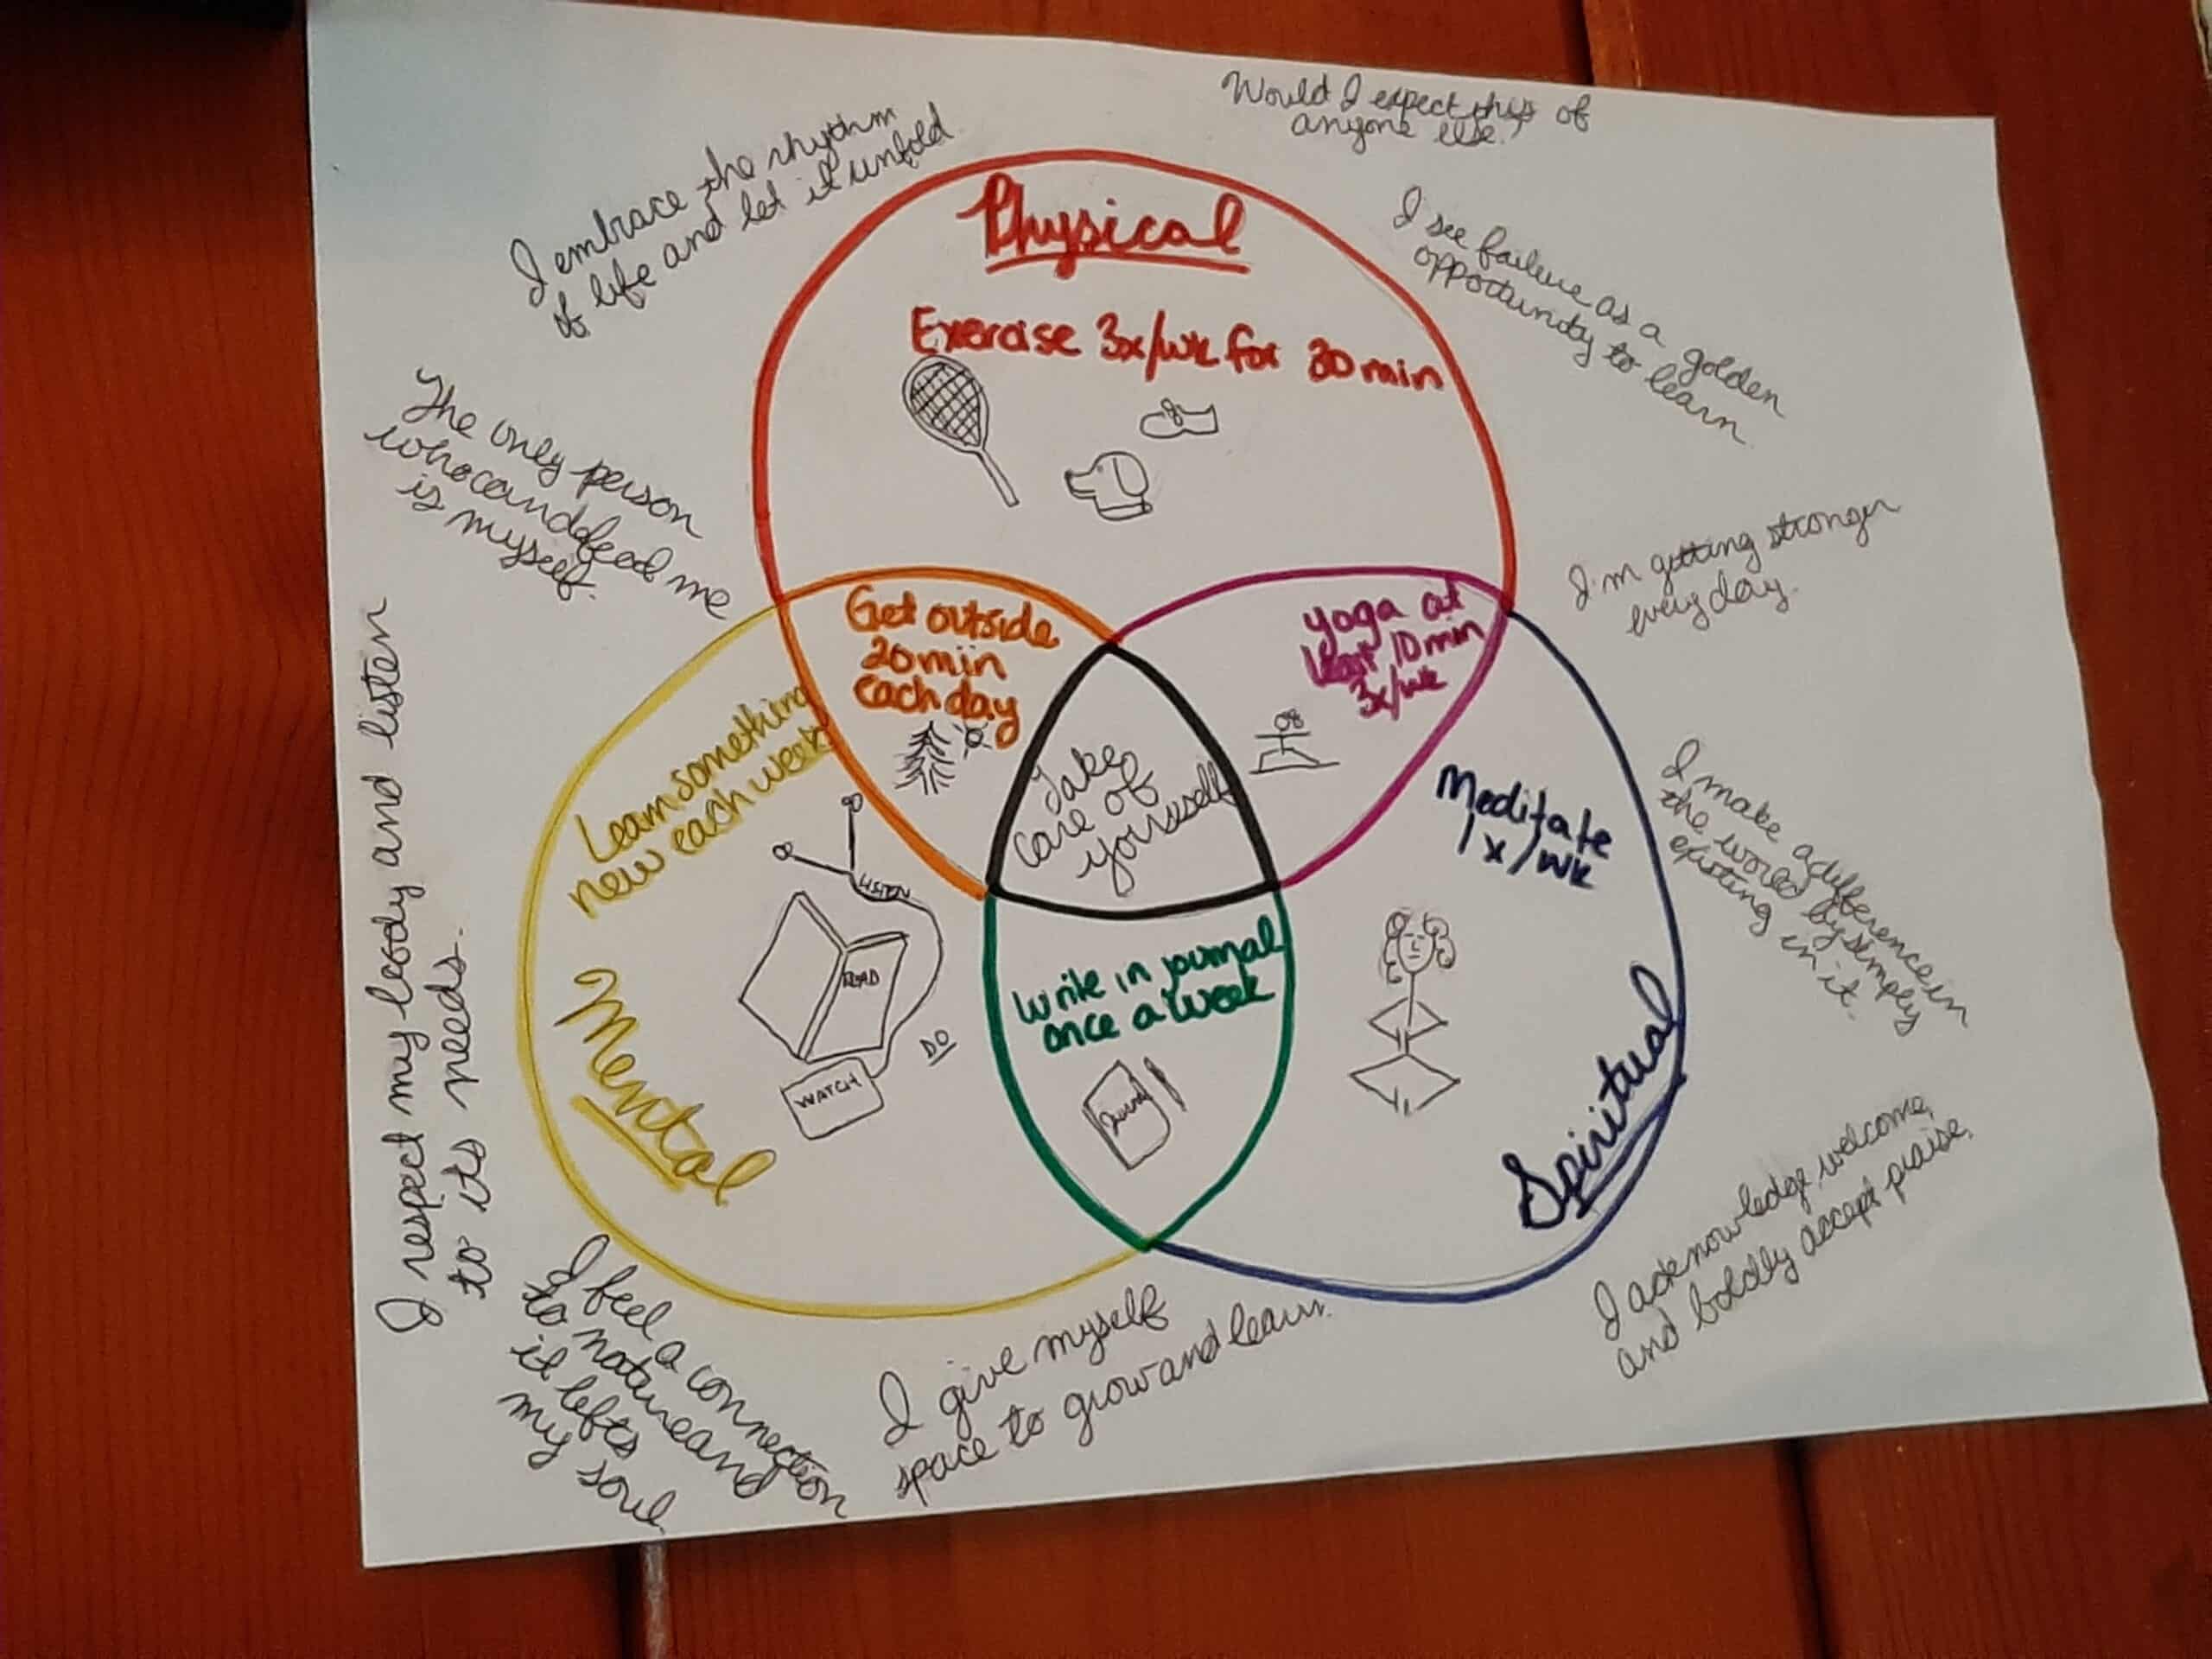 Would I expect this of
anyone else?
I embrace the rhythm
of life and let it unfold
I see failure as a golden
opportunity to learn.
The only person
who can defeat me
is myself.
I'm getting stronger
every day.
I respect my body and listen
to its needs.
I make a difference in
the world by simply
existing in it.
Physical
Exercise 3x/wk for 20 min
Get outside
20 min
each day
yoga at
least 10 min
3x/wk
Take
care of
yourself
Learn something
new each week
LISTEN
READ
WATCH
DO
Mental
Meditate
1x/wk
Spiritual
Write in journal
once a week
Journal
I acknowledge, welcome,
and boldly accept praise.
I feel a connection
to nature and
it lefts
my soul.
I give myself
space to grow and learn.